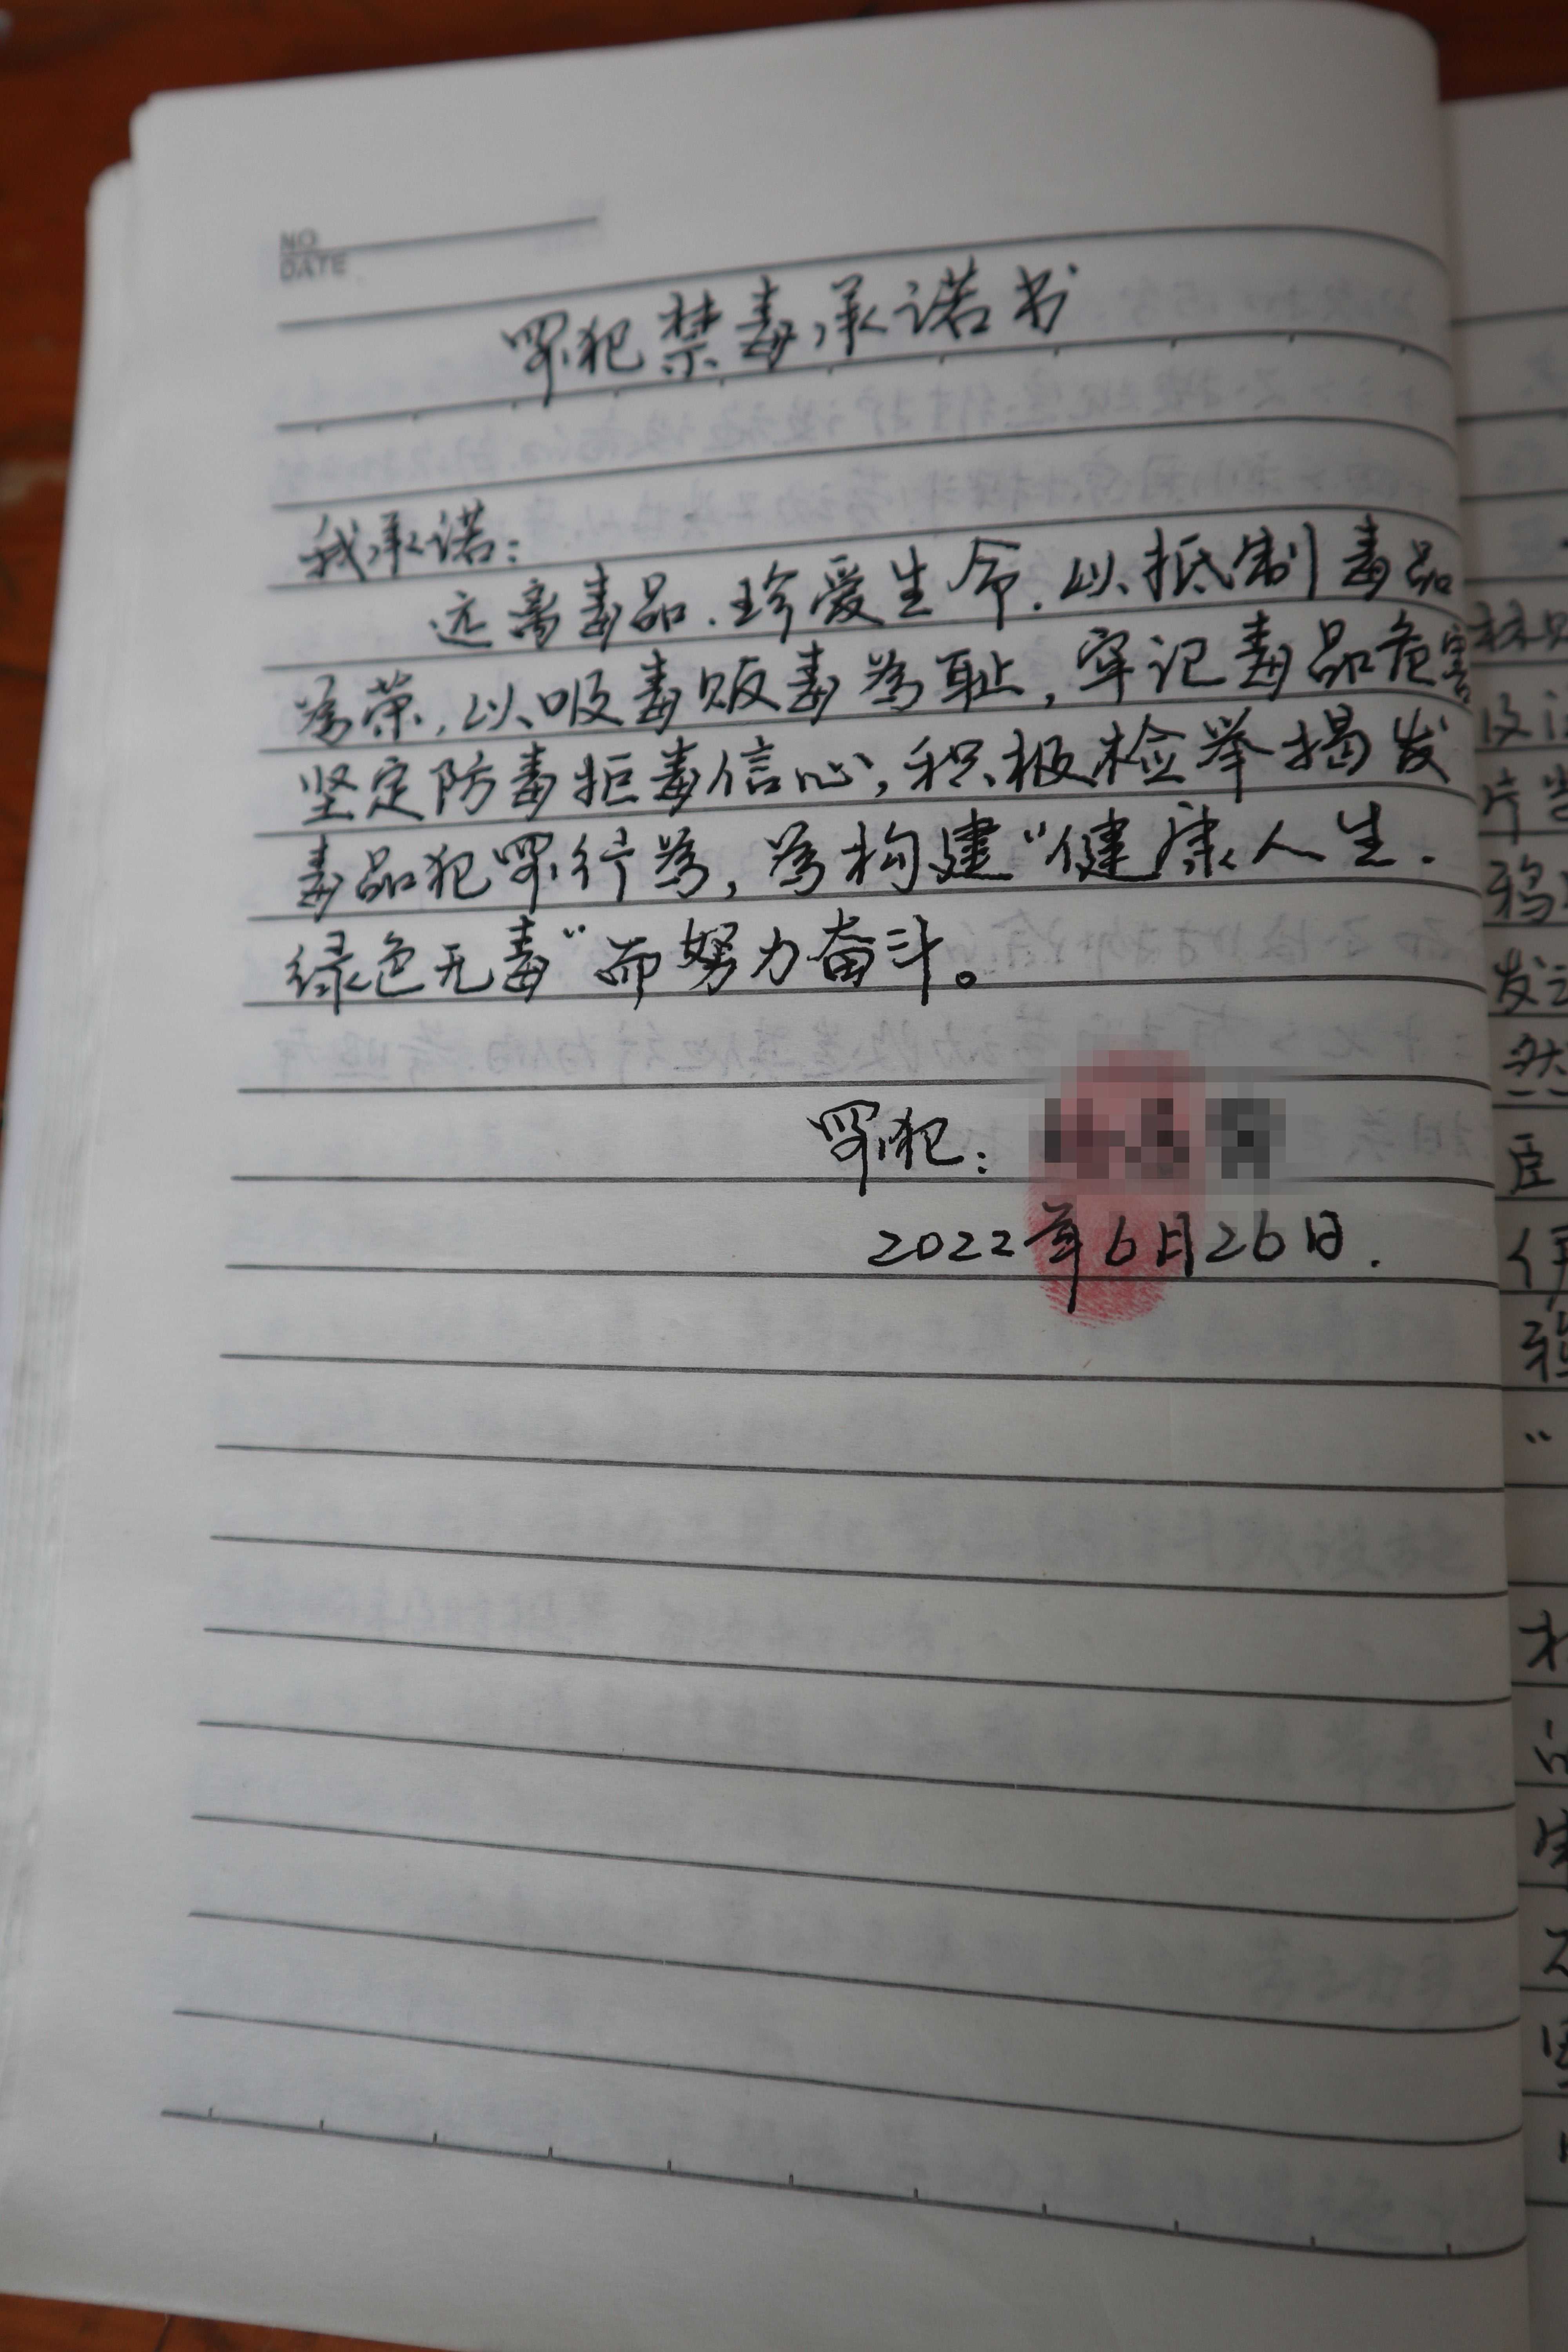 NO
DATE
罪犯禁毒承诺书
我承诺:
远离毒品.珍爱生命.以抵制毒品
為荣,以吸毒贩毒為耻,牢记毒品危害
坚定防毒拒毒信心,积极检举揭发
毒品犯罪行為,為构建“健康人生.
绿色无毒”而努力奋斗。
罪犯:
2022年6月26日.